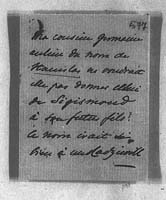 577
Ma cousine germaine
au lieu du nom de
Stanislas ne voudrait
elle pas donner celui
de Sigismond
à son futur fils?
Le nom irait si
bien à un Radziwill